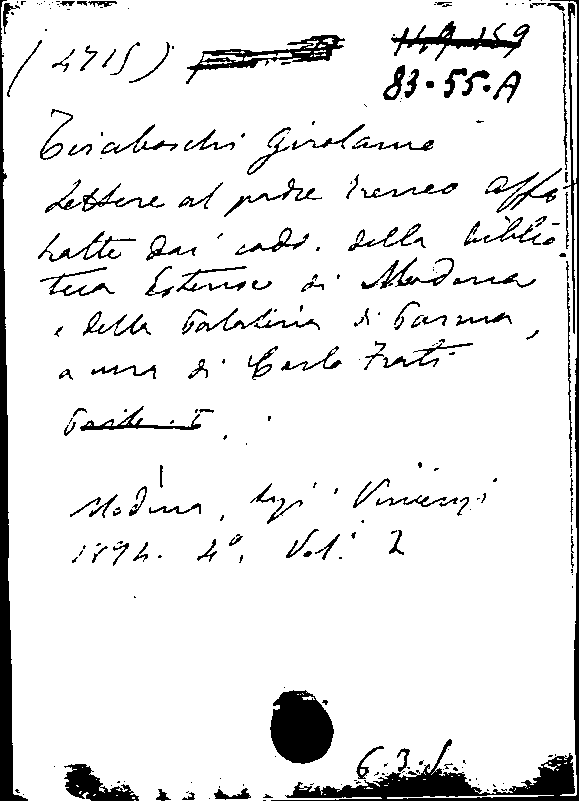 (4715) 11.9.159
83.55.A
Tiraboschi Girolamo
Lettere al padre Ireneo Affò
tratte dai codd. della biblio-
teca Estense di Modena
e della Palatina di Parma,
a cura di Carlo Frati
Parte I.
Modena, tipi Vincenzi
1894. 4°, Vol. 2